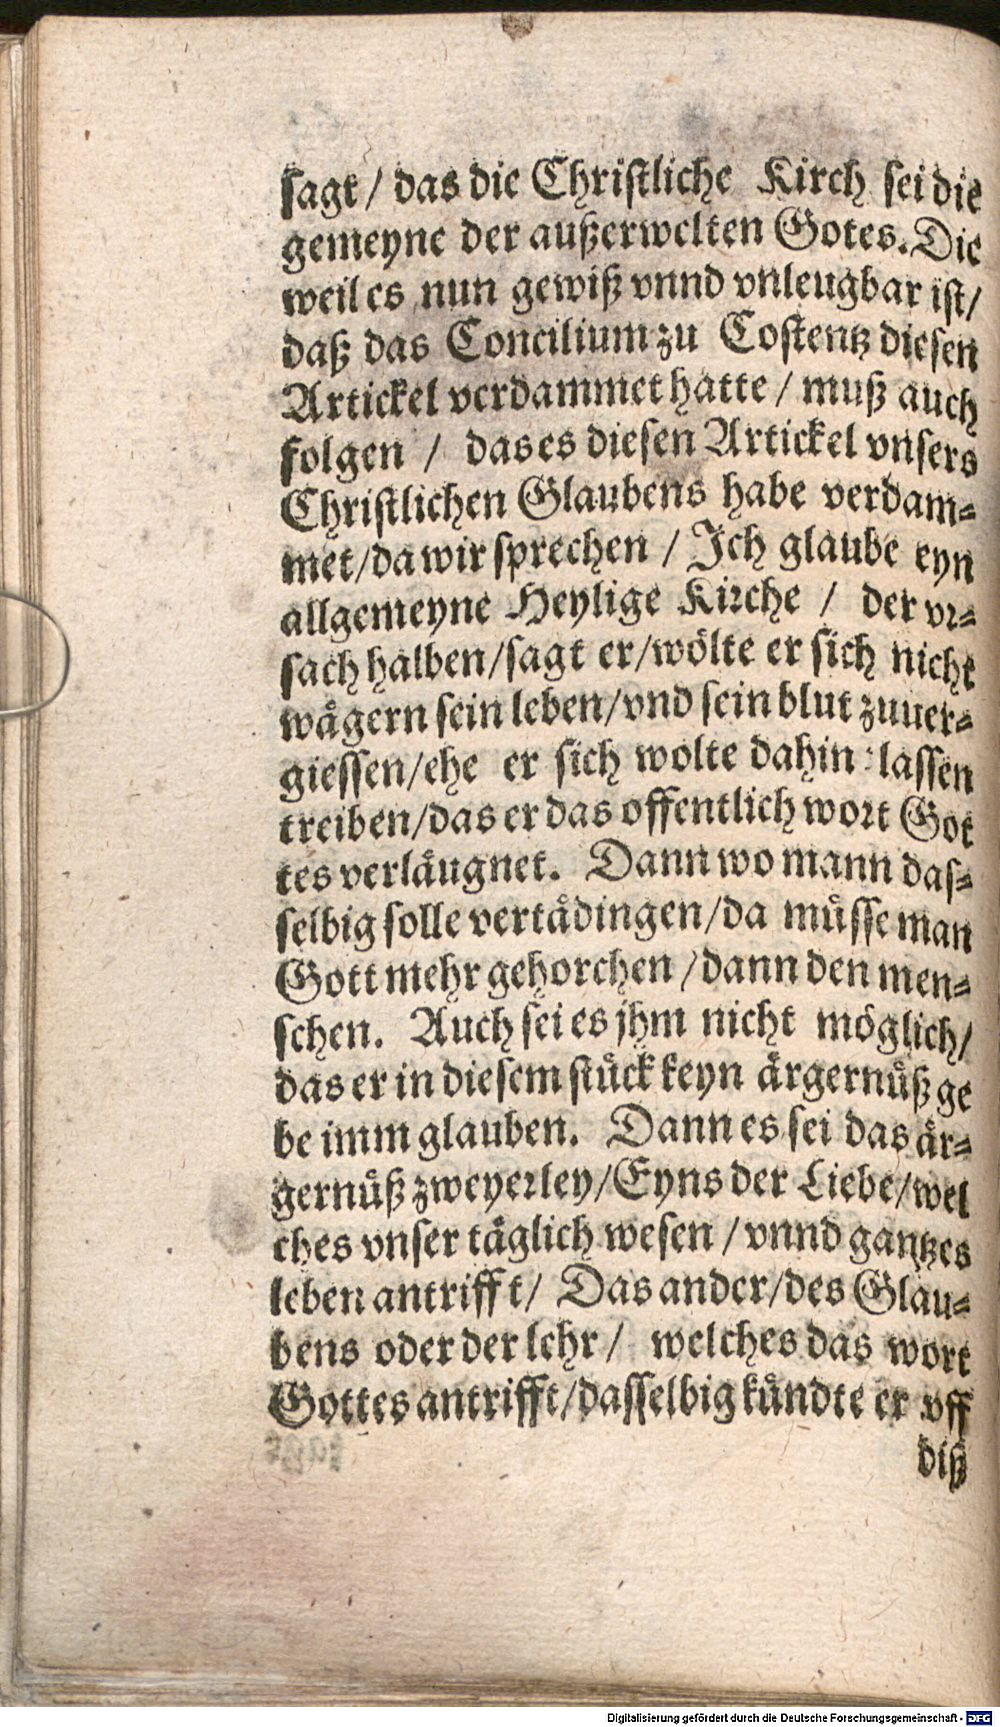 sagt / das die Christliche Kirch sei die
gemeyne der außerwelten Gotes. Die
weil es nun gewiß vnnd vnleugbar ist/
daß das Concilium zu Costentz diesen
Artickel verdammet hatte / muß auch
folgen / das es diesen Artickel vnsers
Christlichen Glaubens habe verdam-
met/da wir sprechen / Ich glaube eyn
allgemeyne Heylige Kirche / der vr-
sach halben/sagt er/wölte er sich nicht
wågern sein leben/vnd sein blut zuuer-
giessen/ehe er sich wolte dahin lassen
treiben/das er das offentlich wort Got
tes verläugnet. Dann wo mann das-
selbig solle vertådingen/da müsse man
Gott mehr gehorchen / dann den men-
schen. Auch sei es jhm nicht möglich/
das er in diesem stück keyn ärgernüß ge
be imm glauben. Dann es sei das är-
gernüß zweyerley/Eyns der Liebe/wel
ches vnser täglich wesen / vnnd gantzes
leben antrifft/ Das ander/des Glau-
bens oder der lehr / welches das wort
Gottes antrifft/dasselbig kündte er vff
diß
Digitalisierung gefördert durch die Deutsche Forschungsgemeinschaft - DFG